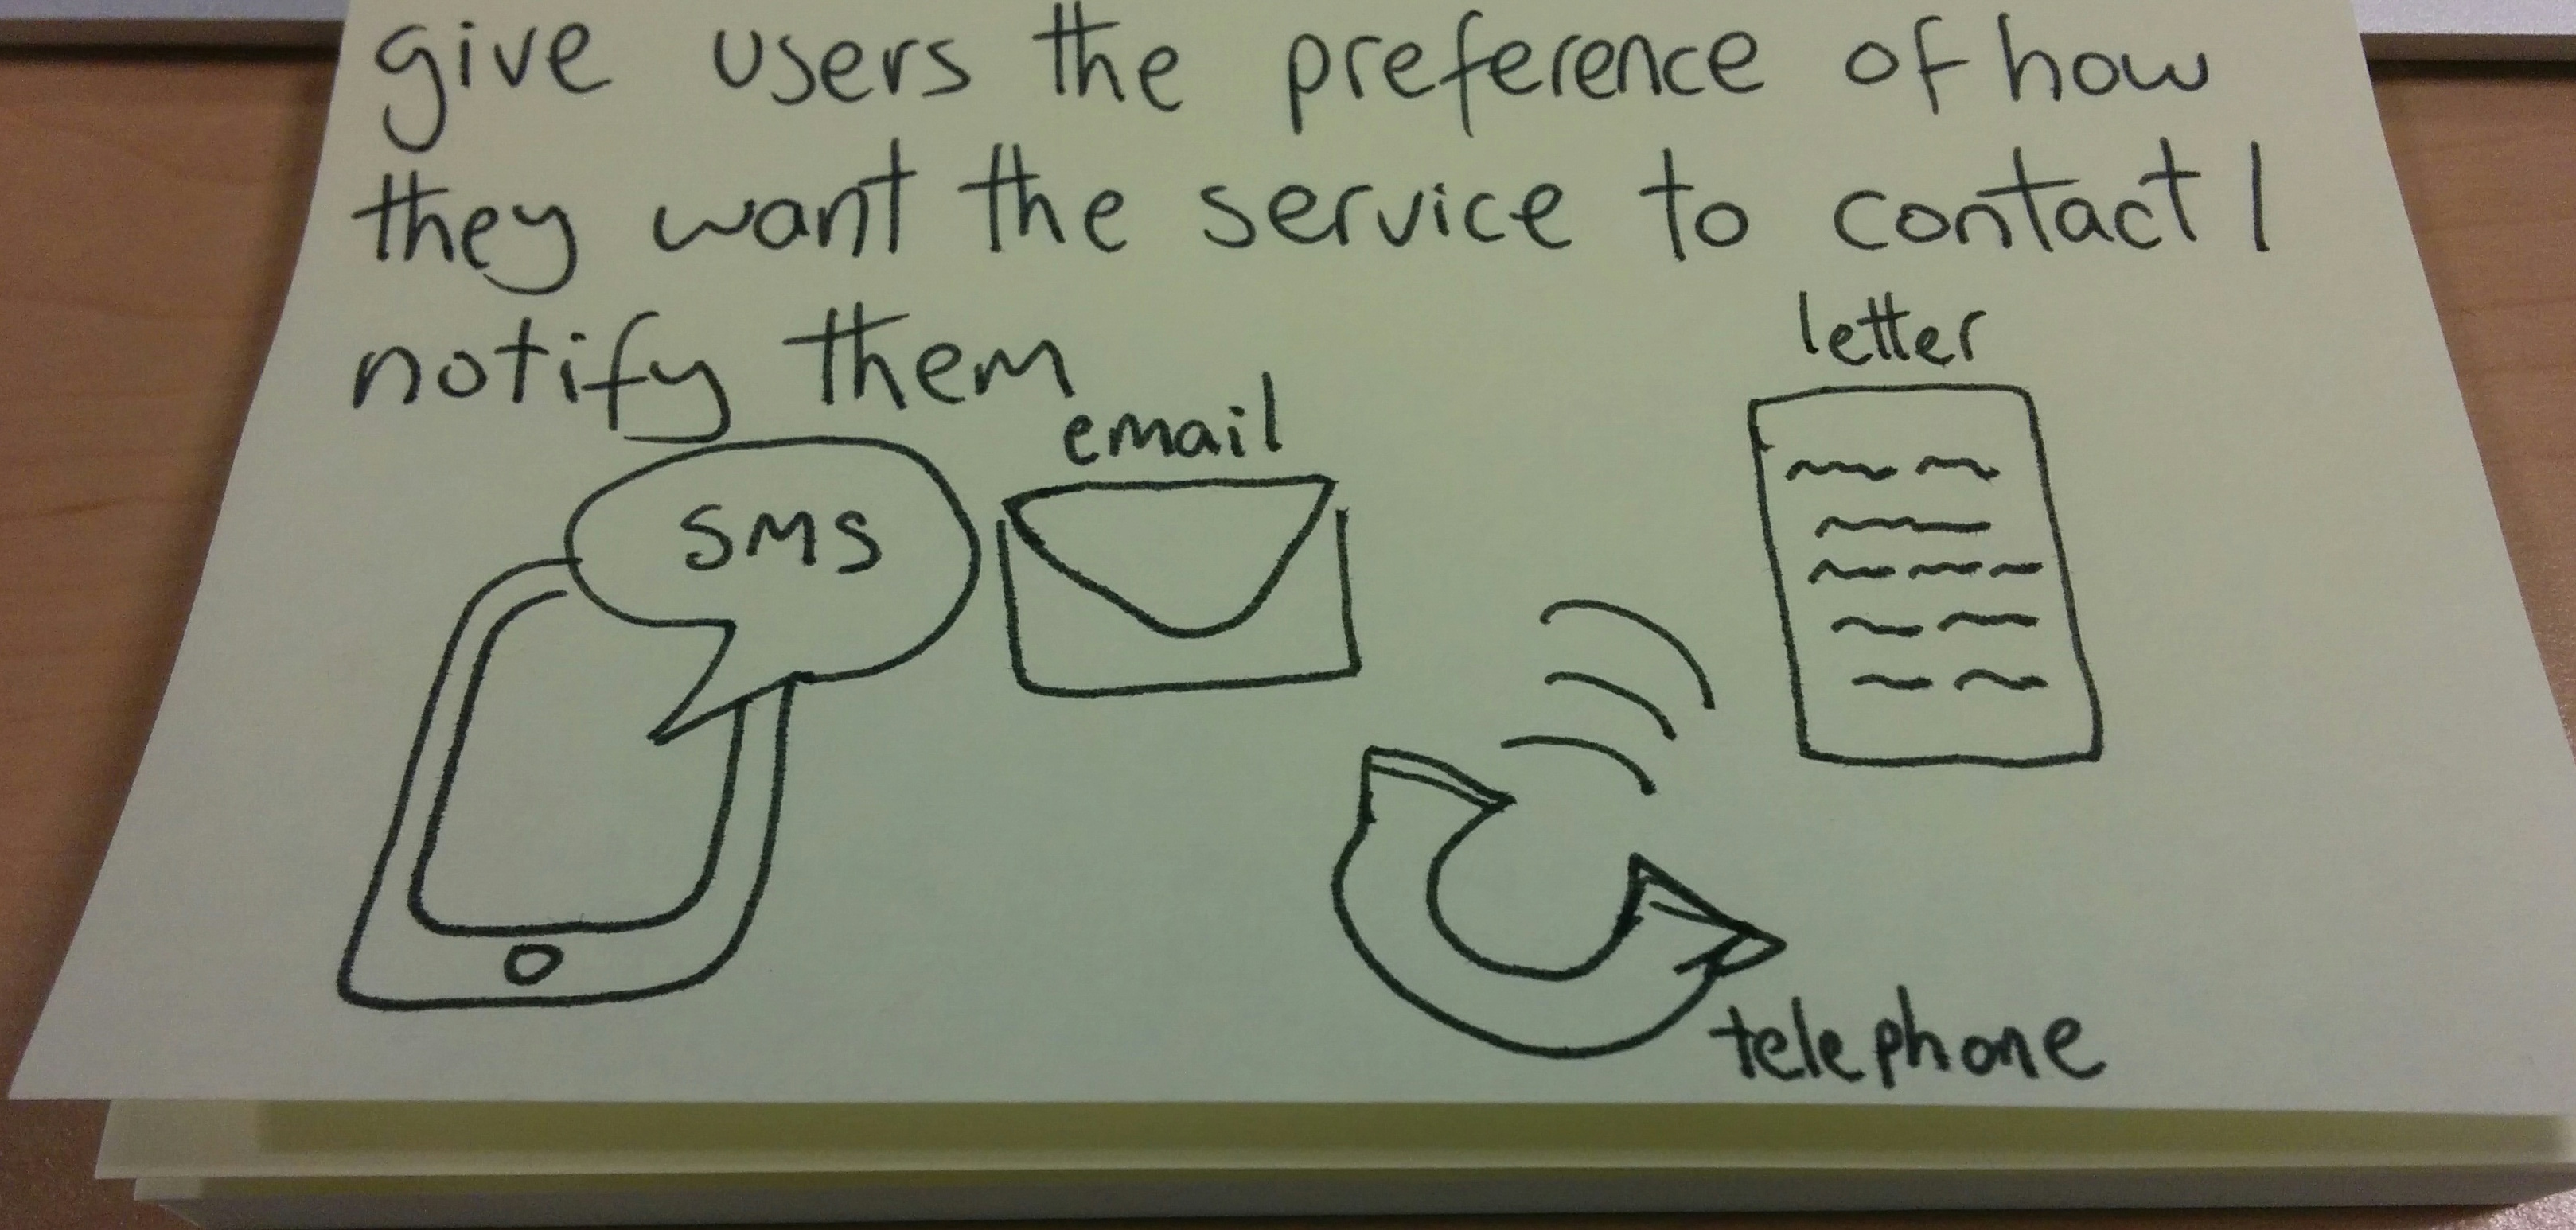 give users the preference of how
they want the service to contact /
notify them
letter
email
SMS
telephone